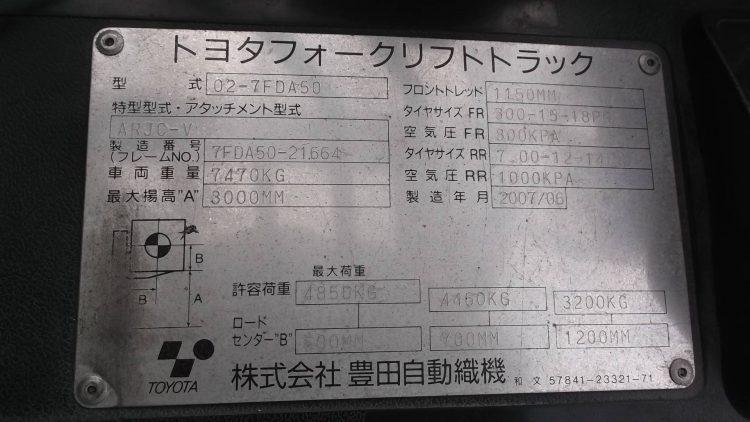 トヨタフォークリフトトラック
型 式 02-7FDA50
特型型式・アタッチメント型式
ARJC-V
製造番号
(フレームNO.) 7FDA50-21664
車両重量 7470KG
最大揚高"A" 3000MM
フロントトレッド 1150MM
タイヤサイズ FR 300-15-18PR
空気圧 FR 800KPA
タイヤサイズ RR 7.00-12-14PR
空気圧 RR 1000KPA
製造年月 2007/06
B
B
A
最大荷重
許容荷重 4850KG 4450KG 3200KG
ロード
センター"B" 600MM 700MM 1200MM
TOYOTA
株式会社 豊田自動織機 和 文 57841-23321-71